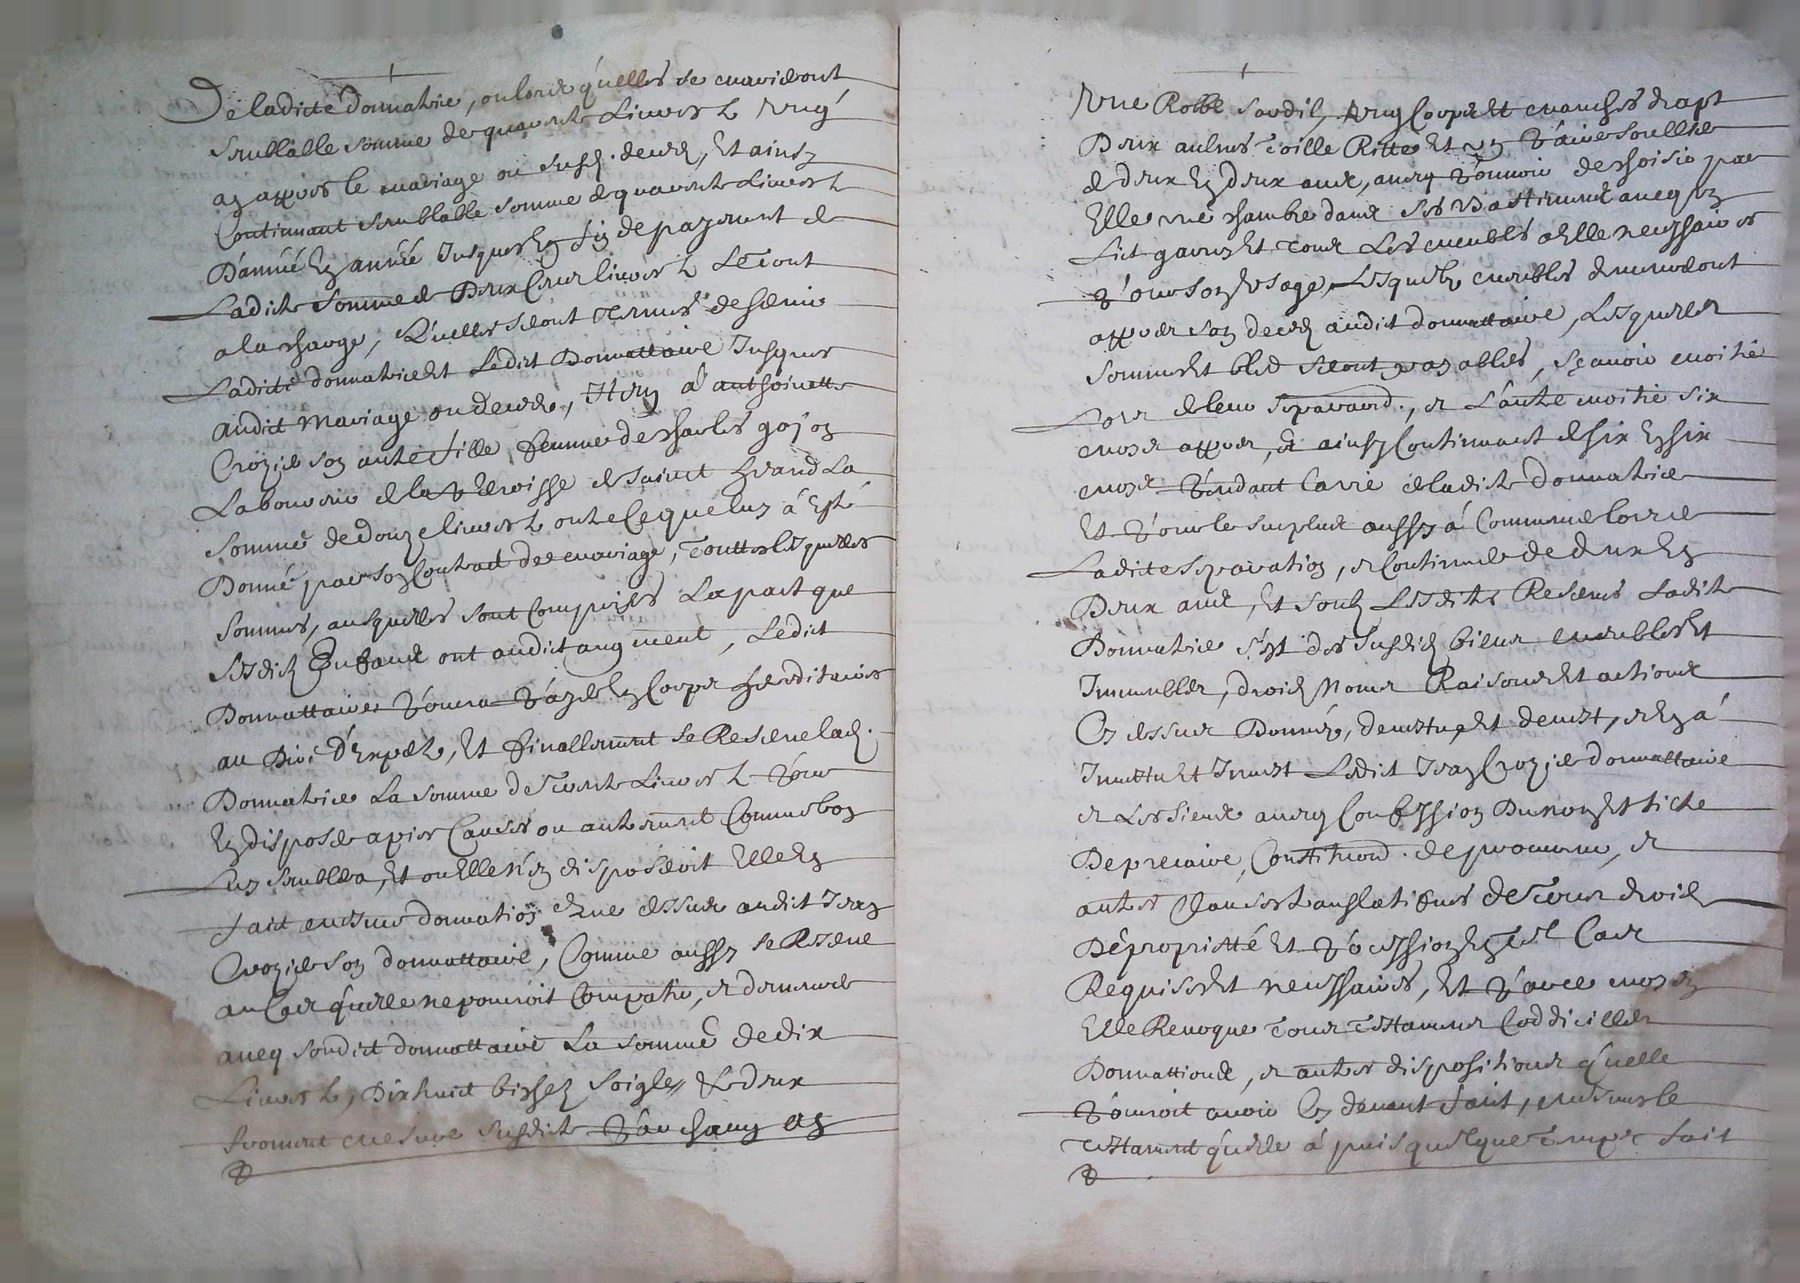 De ladicte donnatrie, ou lors qu'elles se marieront
semblable somme de quarente livres et ung
an appres le mariage ou susd. deced, Et ainsy
Continuant semblable somme de quarente livres
D'année En année Jusques En fin de payement de
Ladicte somme de Deux Cens livres Le tout
a la charge, Qu'elles seront tenues de servir
Ladicte donnatrice Et Ledict Donnattaire Jusques
audict Mariage ou deced, Item à anthoinette
Crozier son autre fille femme de Charles gojon
Laboureur de la parroisse de Saint
Somme de douze livres outre Ce que luy à Esté
Donné par son Contract de mariage, Touttes lesquelles
Sommes, ausquelles sont Comprises La part que
Lesdicts Enfans ont audict augment, Ledict
Donnattaire poura payer En Corps hereditaires
au Dire d'Expers, Et finallement se Reserve lad.
Donnatrice La somme de Trente Livres pour
En disposer a pies Causes ou autrement Comme bon
Luy semblera, Et ou Elle n'en disposeroit Elle En
fait mesme donnation que dessus audict Jean
Crozier son donnattaire, Comme aussy se Reserve
au Cas qu'elle ne pouroit Compatir, et demeurer
avecq sondict donnattaire La somme de dix
Livres, Dix huict bissez soigle, & deux
froment mesure susdicte par Chacun an
Une Robbe sardil, avecq Corps Et manches drapt
Deux aulnes Toille Ritte Et une paire soulliers
de deux En deux ans, avecq pouvoir de choisir par
Elle une chambre dans ses Bastiments avecq un
Lict garny Et tous Les meubles a Elle necessaires
pour son Usage, Lesquels meubles demeureront
appres son deced audict donnattaire, Lesquelles
sommes Et bled seront payables, sçavoir moitié
Lors de leur separaõn., et L'autre moitié six
mois appres, et ainsy Continuant de six En six
mois pendant la vie de ladicte donnatrice
Et pour le surplus aussy à Commencer lors de
Ladicte separation, et Continuer de deux En
Deux ans, Et soubs Lesdittes Reserves Ladicte
Donnatrice s'est des susdits biens meubles Et
Immeubles, droicts Noms Raisons Et actions
Cy dessus Donnés, devestue Et devest, et En á
Investu Et Invest Ledict Jean Crozier donnattaire
et Les siens avecq Confession Du nom Et tiltre
De precaire, Constituõn. de procureur, et
autres Clauses translatives de tous droicts
De proprietté Et possession En tel Cas
Requises Et necessaires, Et par ce moyen
Elle Revoque tous testamens Coddicilles
Donnattions, et autres dispositions qu'elle
pouroit avoir Cy devant fait, mesmes le
Testament qu'elle à puis quelque temps fait